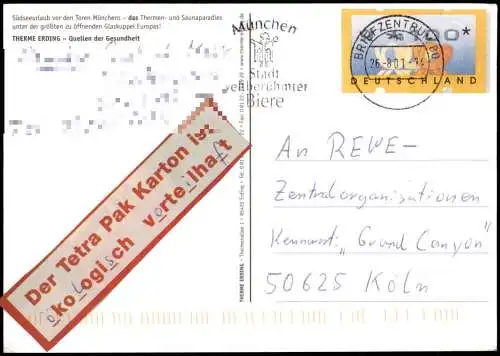 Südseeurlaub vor den Toren Münchens – das Thermen- und Saunaparadies
unter der größten zu öffnenden Glaskuppel Europas!
THERME ERDING – Quellen der Gesundheit
München
Stadt
weltberühmter
Biere
BRIEFZENTRUM 80
26.-8.01-
DEUTSCHLAND
An REWE-
Zentralorganisationen
Kennwort: „Grand Canyon"
50625 Köln
Der Tetra Pak Karton ist
ökologisch vorteilhaft
o l o i s o e i f
THERME ERDING • Thermenallee 1 • 85435 Erding •
www.therme-erding.de